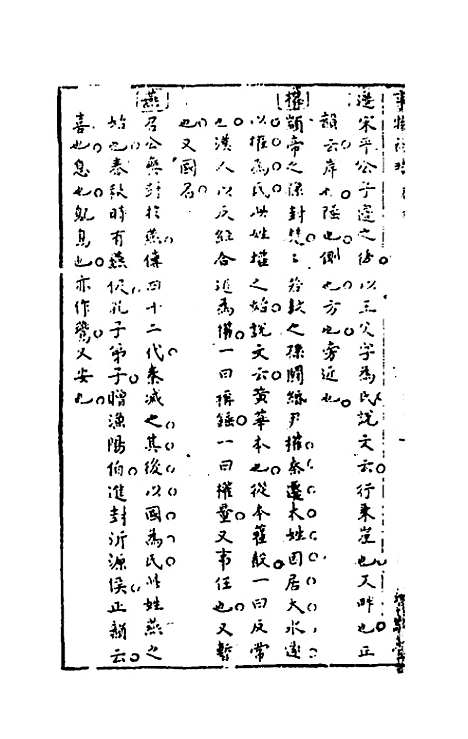 邊宋平公子邊之後以王父字為氏說文云行垂崖也又畔也正
韻云岸也陲也側也方也旁近也
權顓帝之孫封楚之若敖之孫鬬緡尹權秦遷大姓因居天水遂
以權為氏此姓權之始說文云黃華木也從木雚殻一曰反常
也漢人以反經合道為權一曰稱錘一曰權量又事任也又暫
也又國名
燕召公奭封於燕傳四十二代秦滅之其後以國為氏此姓燕之
始也春秋時有燕伋孔子弟子贈漁陽伯進封沂源侯正韻云
喜也息也鳦鳥也亦作鷰又安也